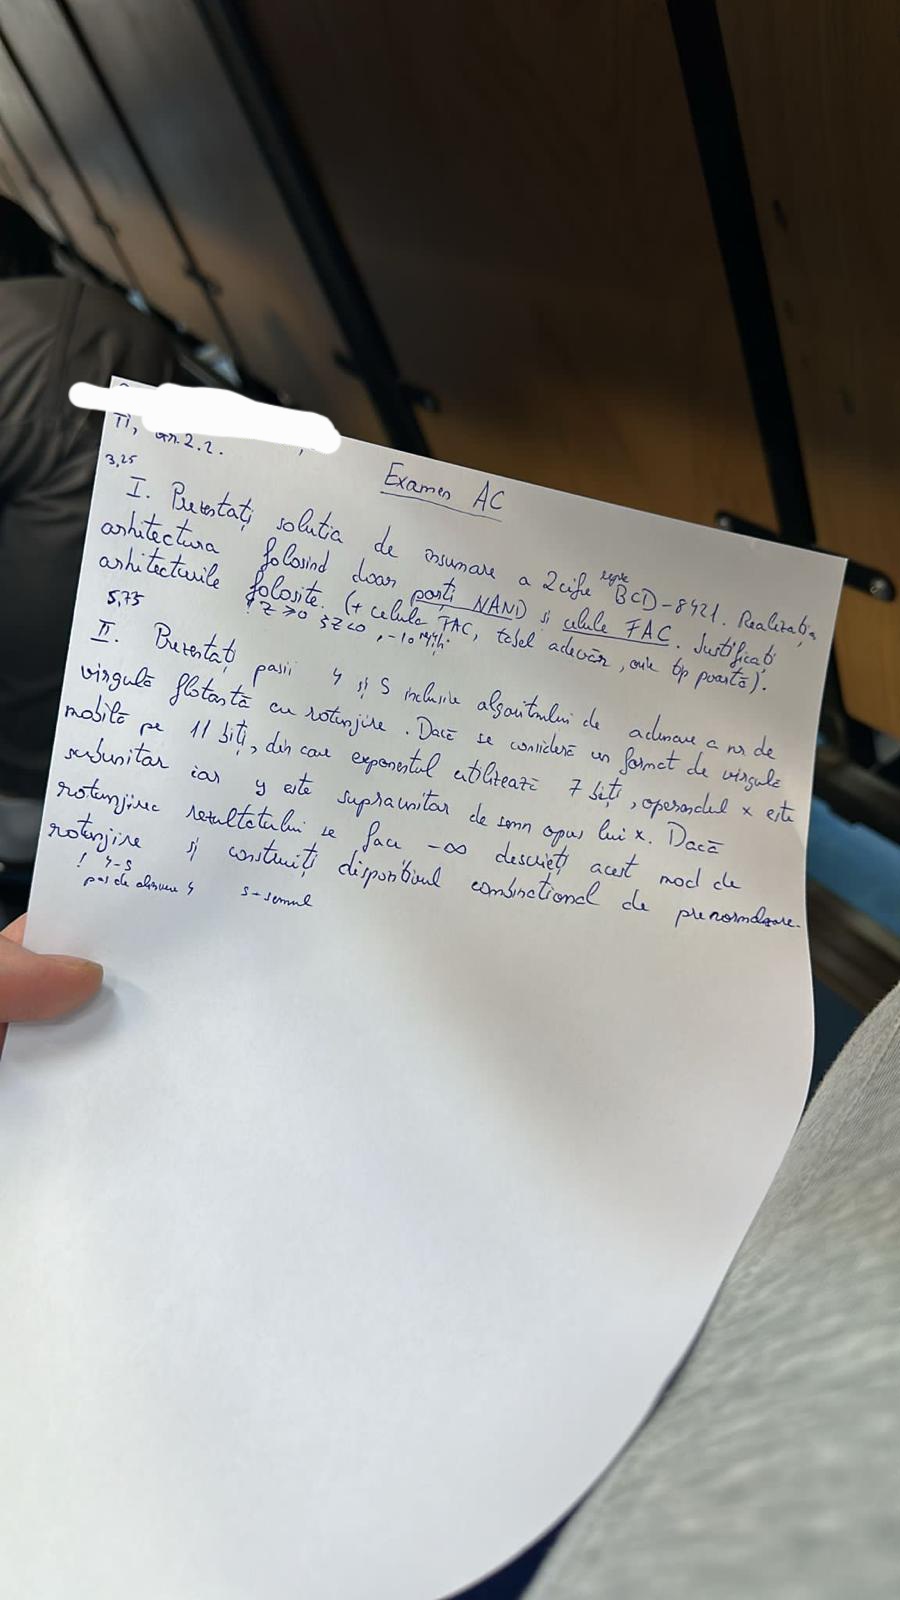 TI, gr.2.2.
Examen AC
3,25
I. Prezentați soluția de însumare a 2 cifre repr BCD-8421. Realizați
arhitectura folosind doar porți NAND și celule FAC. Justificați
arhitecturile folosite. (+ celula FAC, tabel adevăr, orice tip poartă).
! Z ≥ 0 ; Z < 0 , -10
5,75
II. Prezentați pașii 4 și 5 inclusiv algoritmului de adunare a nr de
virgulă flotantă cu rotunjire. Dacă se consideră un format de virgulă
mobilă pe 11 biți, din care exponentul utilizează 7 biți, operandul x este
subunitar iar y este supraunitar de semn opus lui x. Dacă
rotunjirea rezultatului se face -∞ descrieți acest mod de
rotunjire și construiți dispozitivul combinațional de prenormalizare.
! 4-5
pas de 4 5-semnul